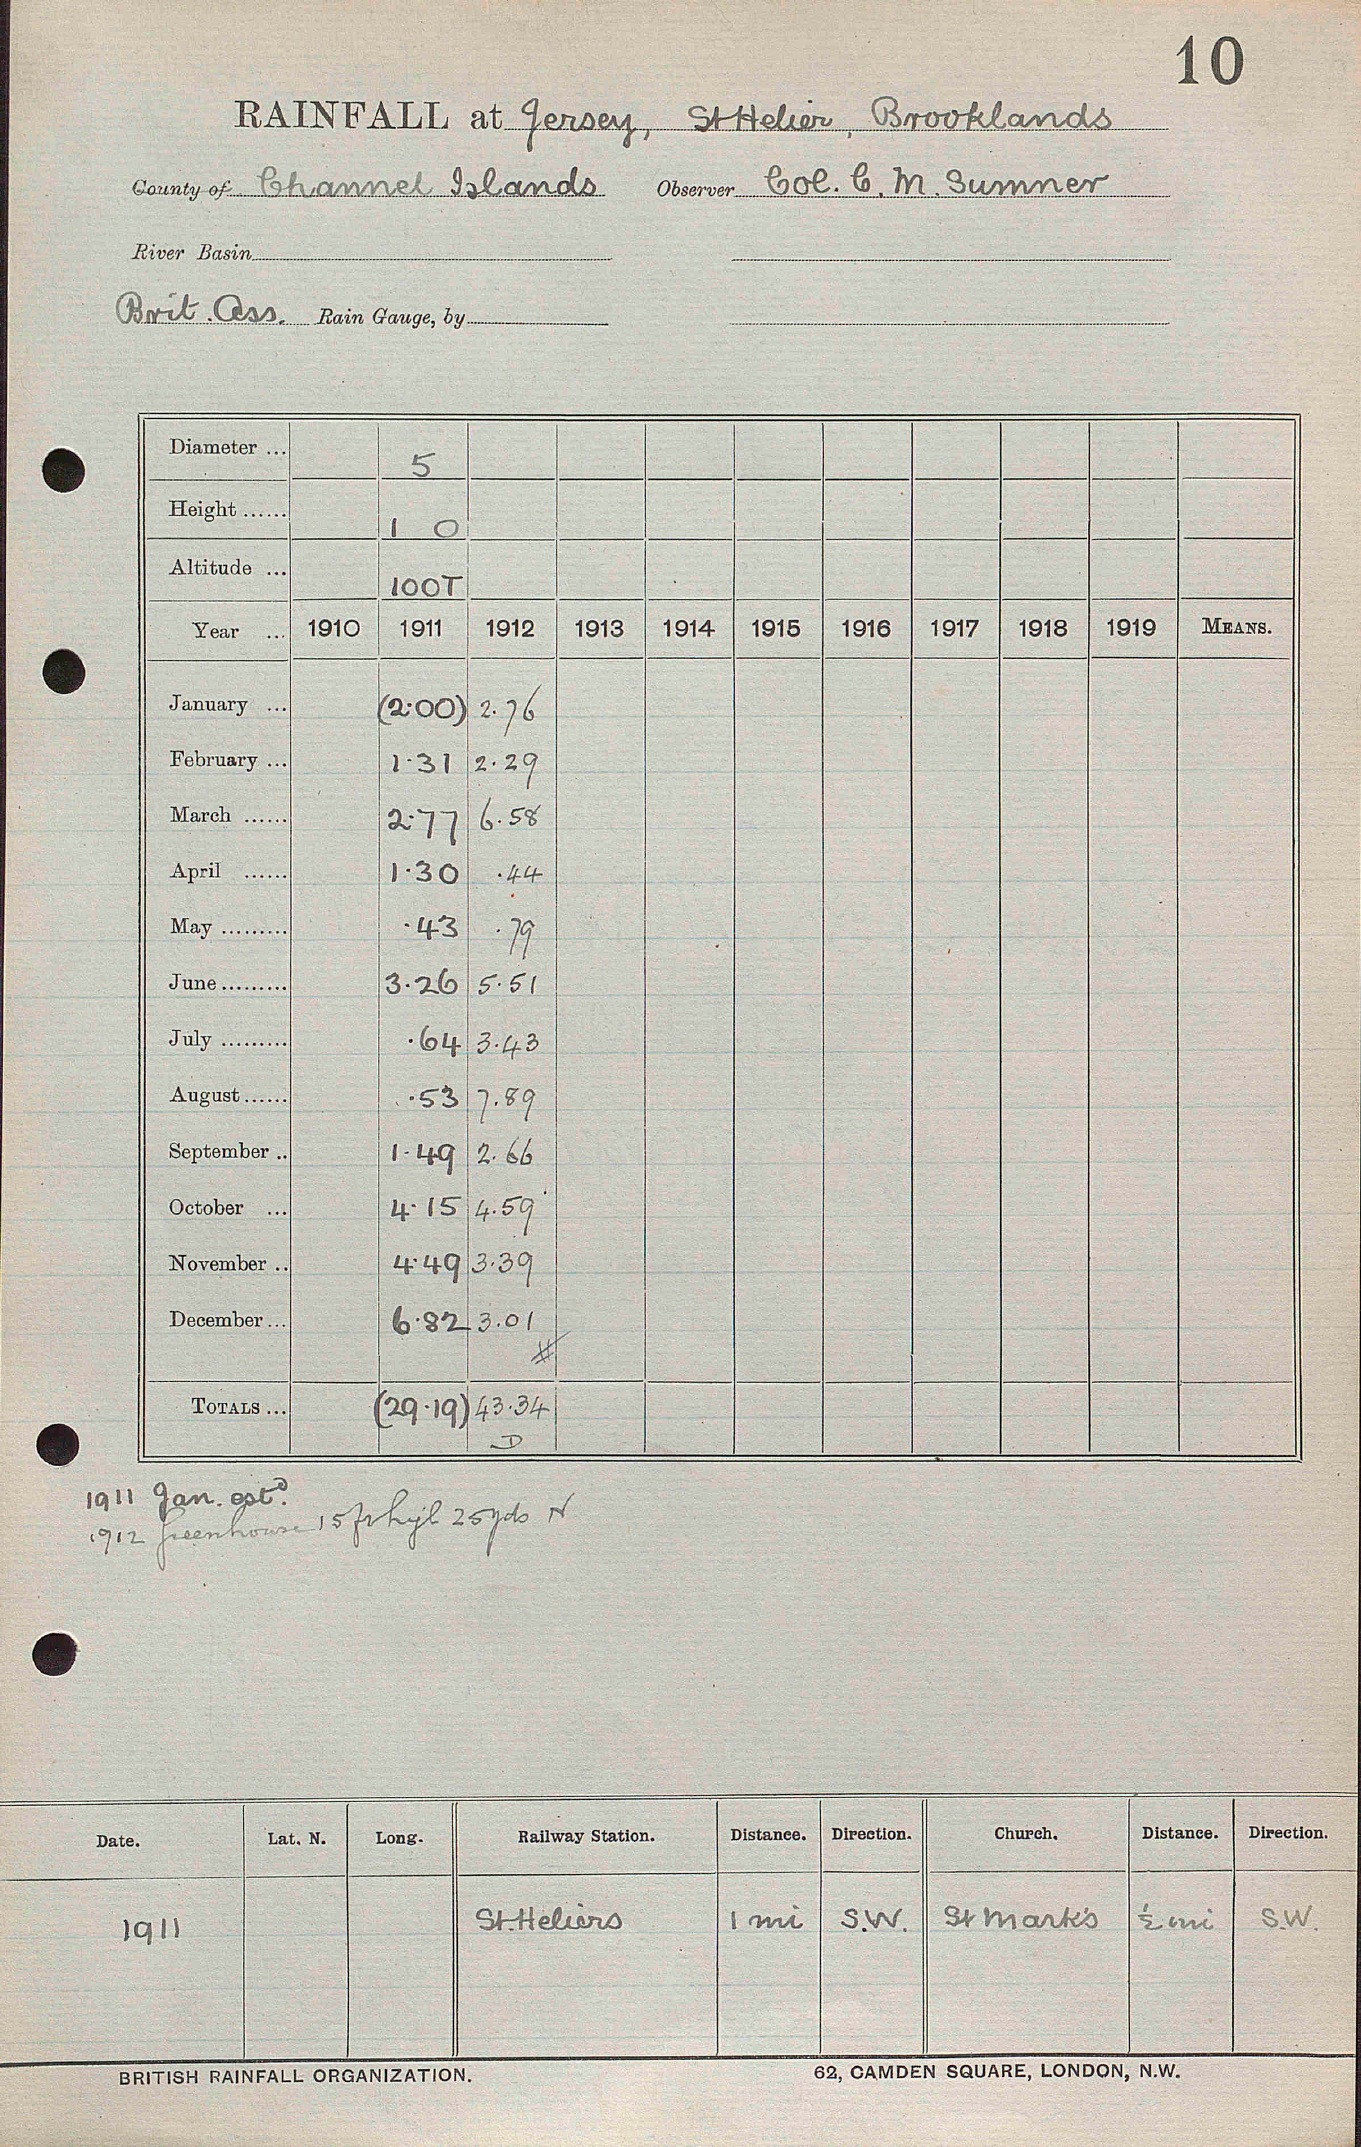 10
RAINFALL at Jersey, St Helier, Brooklands
County of Channel Islands Observer Col. C. M. Sumner
River Basin
Brit. Ass. Rain Gauge, by
Diameter ... 5
Height ...... 1 0
Altitude ... 100T
Year ... 1910 1911 1912 1913 1914 1915 1916 1917 1918 1919 MEANS.
January ... (2·00) 2.76
February ... 1·31 2·29
March ...... 2·77 6.58
April ...... 1·30 ·44
May ......... ·43 ·79
June ......... 3·26 5·51
July ......... ·64 3·43
August ...... ·53 7.89
September .. 1·49 2.66
October ... 4·15 4.59
November .. 4·49 3·39
December ... 6·82 3.01
#
TOTALS ... (29·19) 43·34
D
1911 Jan. estd.
1912 Greenhouse 15 ft high 25 yds N
Date. Lat. N. Long. Railway Station. Distance. Direction. Church. Distance. Direction.
1911 St. Heliers 1 mi S.W. St Mark's ½ mi S.W.
BRITISH RAINFALL ORGANIZATION. 62, CAMDEN SQUARE, LONDON, N.W.